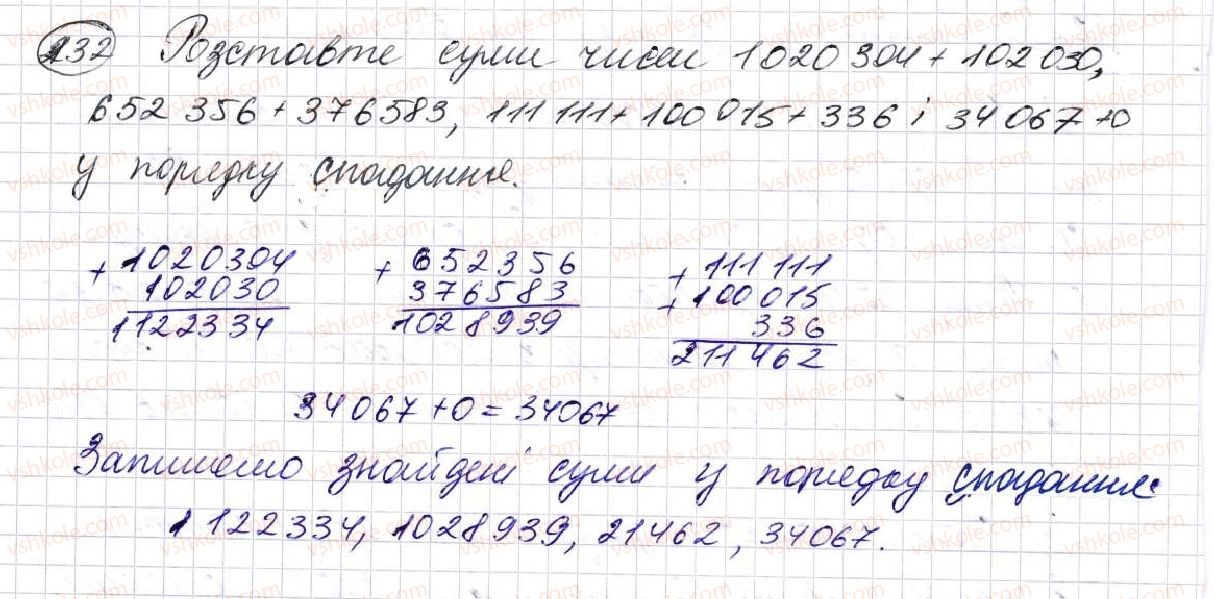 132 Розставте суми чисел 1020 304 + 102 030,
652 356 + 376583, 111 111 + 100 015 + 336 і 34 067 + 0
у порядку спадання.
+ 1020304 + 652356 + 111 111
102030 376583 + 100 015
1122334 1028939 336
211 462
34 067 + 0 = 34067
Запишемо знайдені суми у порядку спадання:
1 122334, 1028939, 21462, 34067.